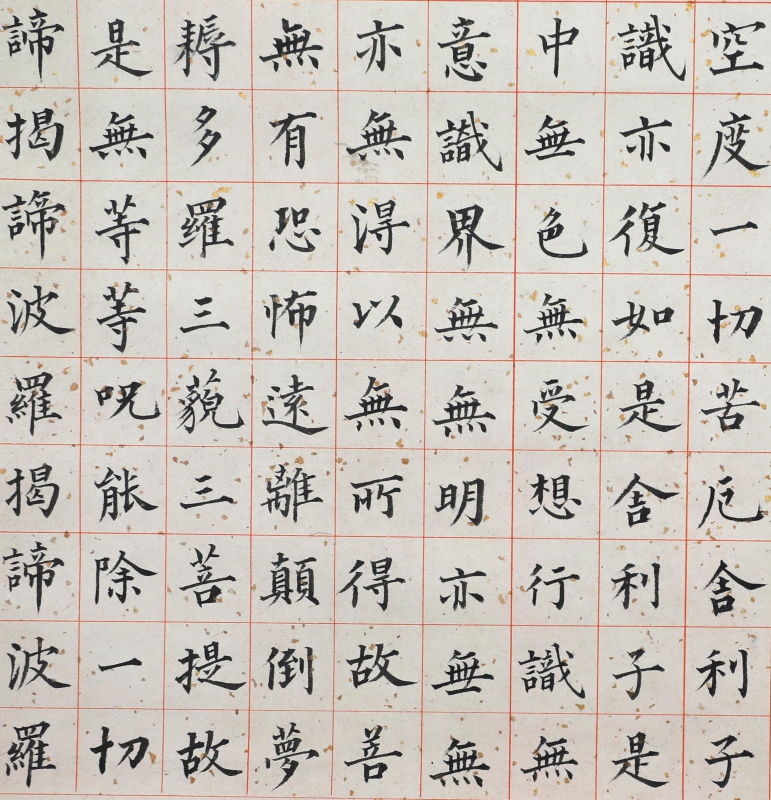 空度一切苦厄舍利子
識亦復如是舍利子是
中無色無受想行識無
意識界無無明亦無無
亦無得以無所得故菩
無有恐怖遠離顛倒夢
耨多羅三藐三菩提故
是無等等呪能除一切
諦揭諦波羅揭諦波羅